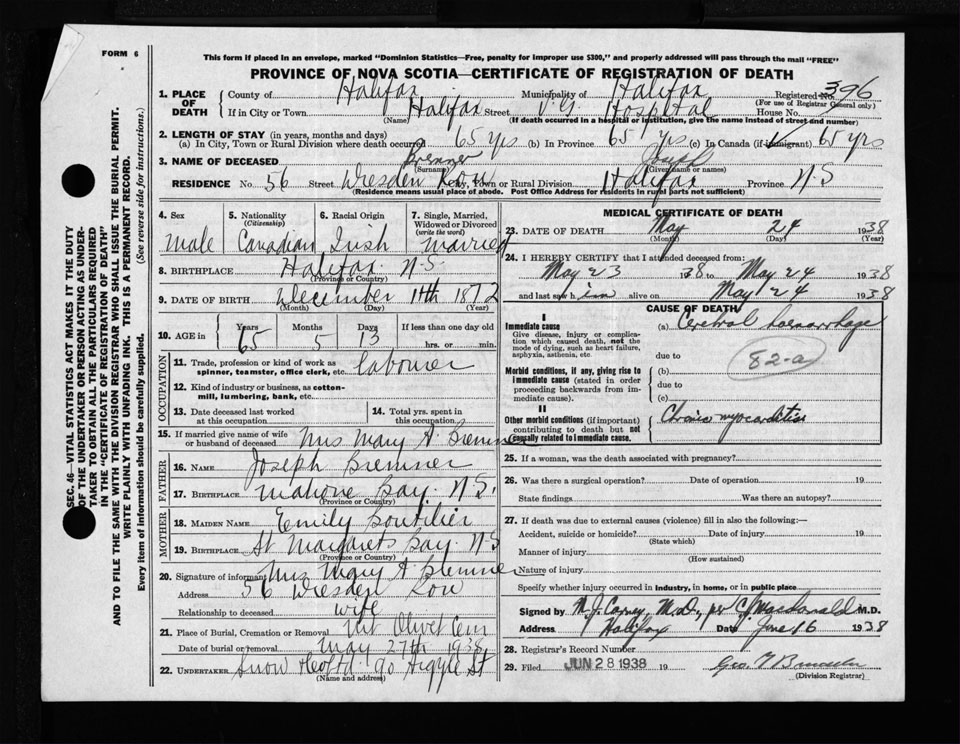 FORM 6
This form if placed in an envelope, marked "Dominion Statistics—Free, penalty for improper use $300," and properly addressed will pass through the mail "FREE"
PROVINCE OF NOVA SCOTIA—CERTIFICATE OF REGISTRATION OF DEATH
SEC. 46—VITAL STATISTICS ACT MAKES IT THE DUTY
OF THE UNDERTAKER OR PERSON ACTING AS UNDER-
TAKER TO OBTAIN ALL THE PARTICULARS REQUIRED
IN THE "CERTIFICATE OF REGISTRATION OF DEATH"
AND TO FILE THE SAME WITH THE DIVISION REGISTRAR WHO SHALL ISSUE THE BURIAL PERMIT.
WRITE PLAINLY WITH UNFADING INK. THIS IS A PERMANENT RECORD.
Every item of information should be carefully supplied. (See reverse side for instructions.)
1. PLACE OF DEATH County of Halifax Municipality of Halifax Registered No. 396
(For use of Registrar General only)
If in City or Town Halifax Street V.G. Hospital House No.
(Name) (If death occurred in a hospital or institution, give the name instead of street and number)
2. LENGTH OF STAY (in years, months and days)
(a) In City, Town or Rural Division where death occurred 65 yrs (b) In Province 65 yrs (c) In Canada (if immigrant) 65 yrs
3. NAME OF DECEASED Bremner Joseph
(Surname) (Given name or names)
RESIDENCE No. 56 Street Dresden Row City, Town or Rural Division Halifax Province N.S
(Residence means usual place of abode. Post Office Address for residents in rural parts not sufficient)
4. Sex 5. Nationality (Citizenship) 6. Racial Origin 7. Single, Married, Widowed or Divorced (write the word)
Male Canadian Irish Married
8. BIRTHPLACE Halifax N.S.
(Province or Country)
9. DATE OF BIRTH December 11th 1872
(Month) (Day) (Year)
10. AGE in Years 65 Months 5 Days 13 If less than one day old
hrs. or min.
OCCUPATION
11. Trade, profession or kind of work as spinner, teamster, office clerk, etc. labourer
12. Kind of industry or business, as cotton-mill, lumbering, bank, etc.
13. Date deceased last worked at this occupation 14. Total yrs. spent in this occupation
15. If married give name of wife or husband of deceased Mrs Mary A. Bremner
FATHER
16. NAME Joseph Bremner
17. BIRTHPLACE Mahone Bay. N.S.
(Province or Country)
MOTHER
18. MAIDEN NAME Emily Boutilier
19. BIRTHPLACE St Margarets Bay. N.S
(Province or Country)
20. Signature of informant Mrs Mary A Bremner
Address 56 Dresden Row
Relationship to deceased wife
21. Place of Burial, Cremation or Removal Mt Olivet Cem
Date of burial or removal May 27th 1938
22. UNDERTAKER Snow & Co Ltd. 90 Argyle St
(Name and address)
MEDICAL CERTIFICATE OF DEATH
23. DATE OF DEATH May 24 1938
(Month) (Day) (Year)
24. I HEREBY CERTIFY that I attended deceased from:
May 23 1938 to May 24 1938
and last saw him alive on May 24 1938
CAUSE OF DEATH
I
Immediate cause (a) Cerebral haemorrhage
Give disease, injury or complication which caused death, not the mode of dying, such as heart failure, asphyxia, asthenia, etc.
due to
82-a
Morbid conditions, if any, giving rise to immediate cause (stated in order proceeding backwards from immediate cause).
(b)
due to
(c)
II
Other morbid conditions (if important) contributing to death but not causally related to immediate cause.
Chronic myocarditis
25. If a woman, was the death associated with pregnancy?
26. Was there a surgical operation? Date of operation 19
State findings Was there an autopsy?
27. If death was due to external causes (violence) fill in also the following:—
Accident, suicide or homicide? Date of injury 19
(State which)
Manner of injury
(How sustained)
Nature of injury
Specify whether injury occurred in industry, in home, or in public place
Signed by M. J. Carney, M.D., per C.J. Macdonald M.D.
Address Halifax Date June 16 1938
28. Registrar's Record Number
29. Filed JUN 28 1938 19
(Division Registrar)